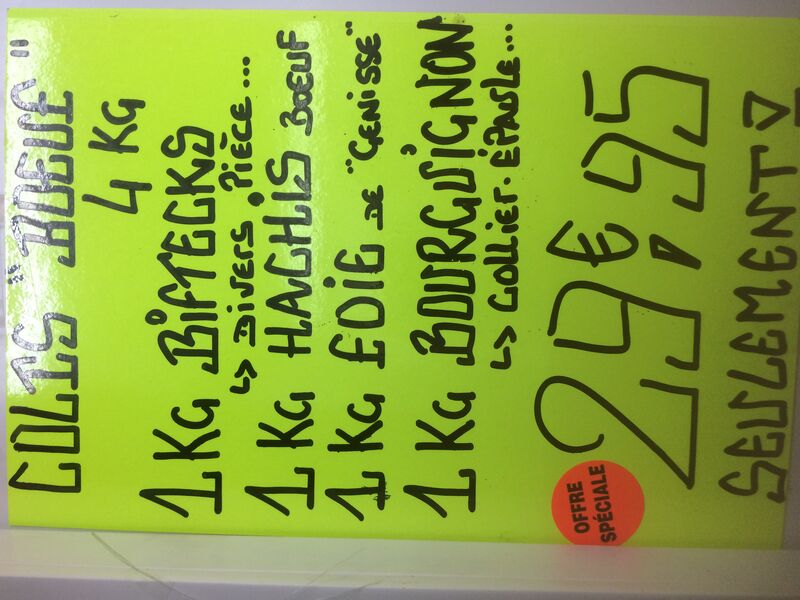 COLIS "BOEUF"
4 KG
1 KG BIFTECKS
↳ DIVERS PIÈCE...
1 KG HACHIS BOEUF
1 KG FOIE DE "GENISSE"
1 KG BOURGUIGNON
↳ COLLIER. EPAULE...
29€,95
OFFRE
SPÉCIALE
SEULEMENT